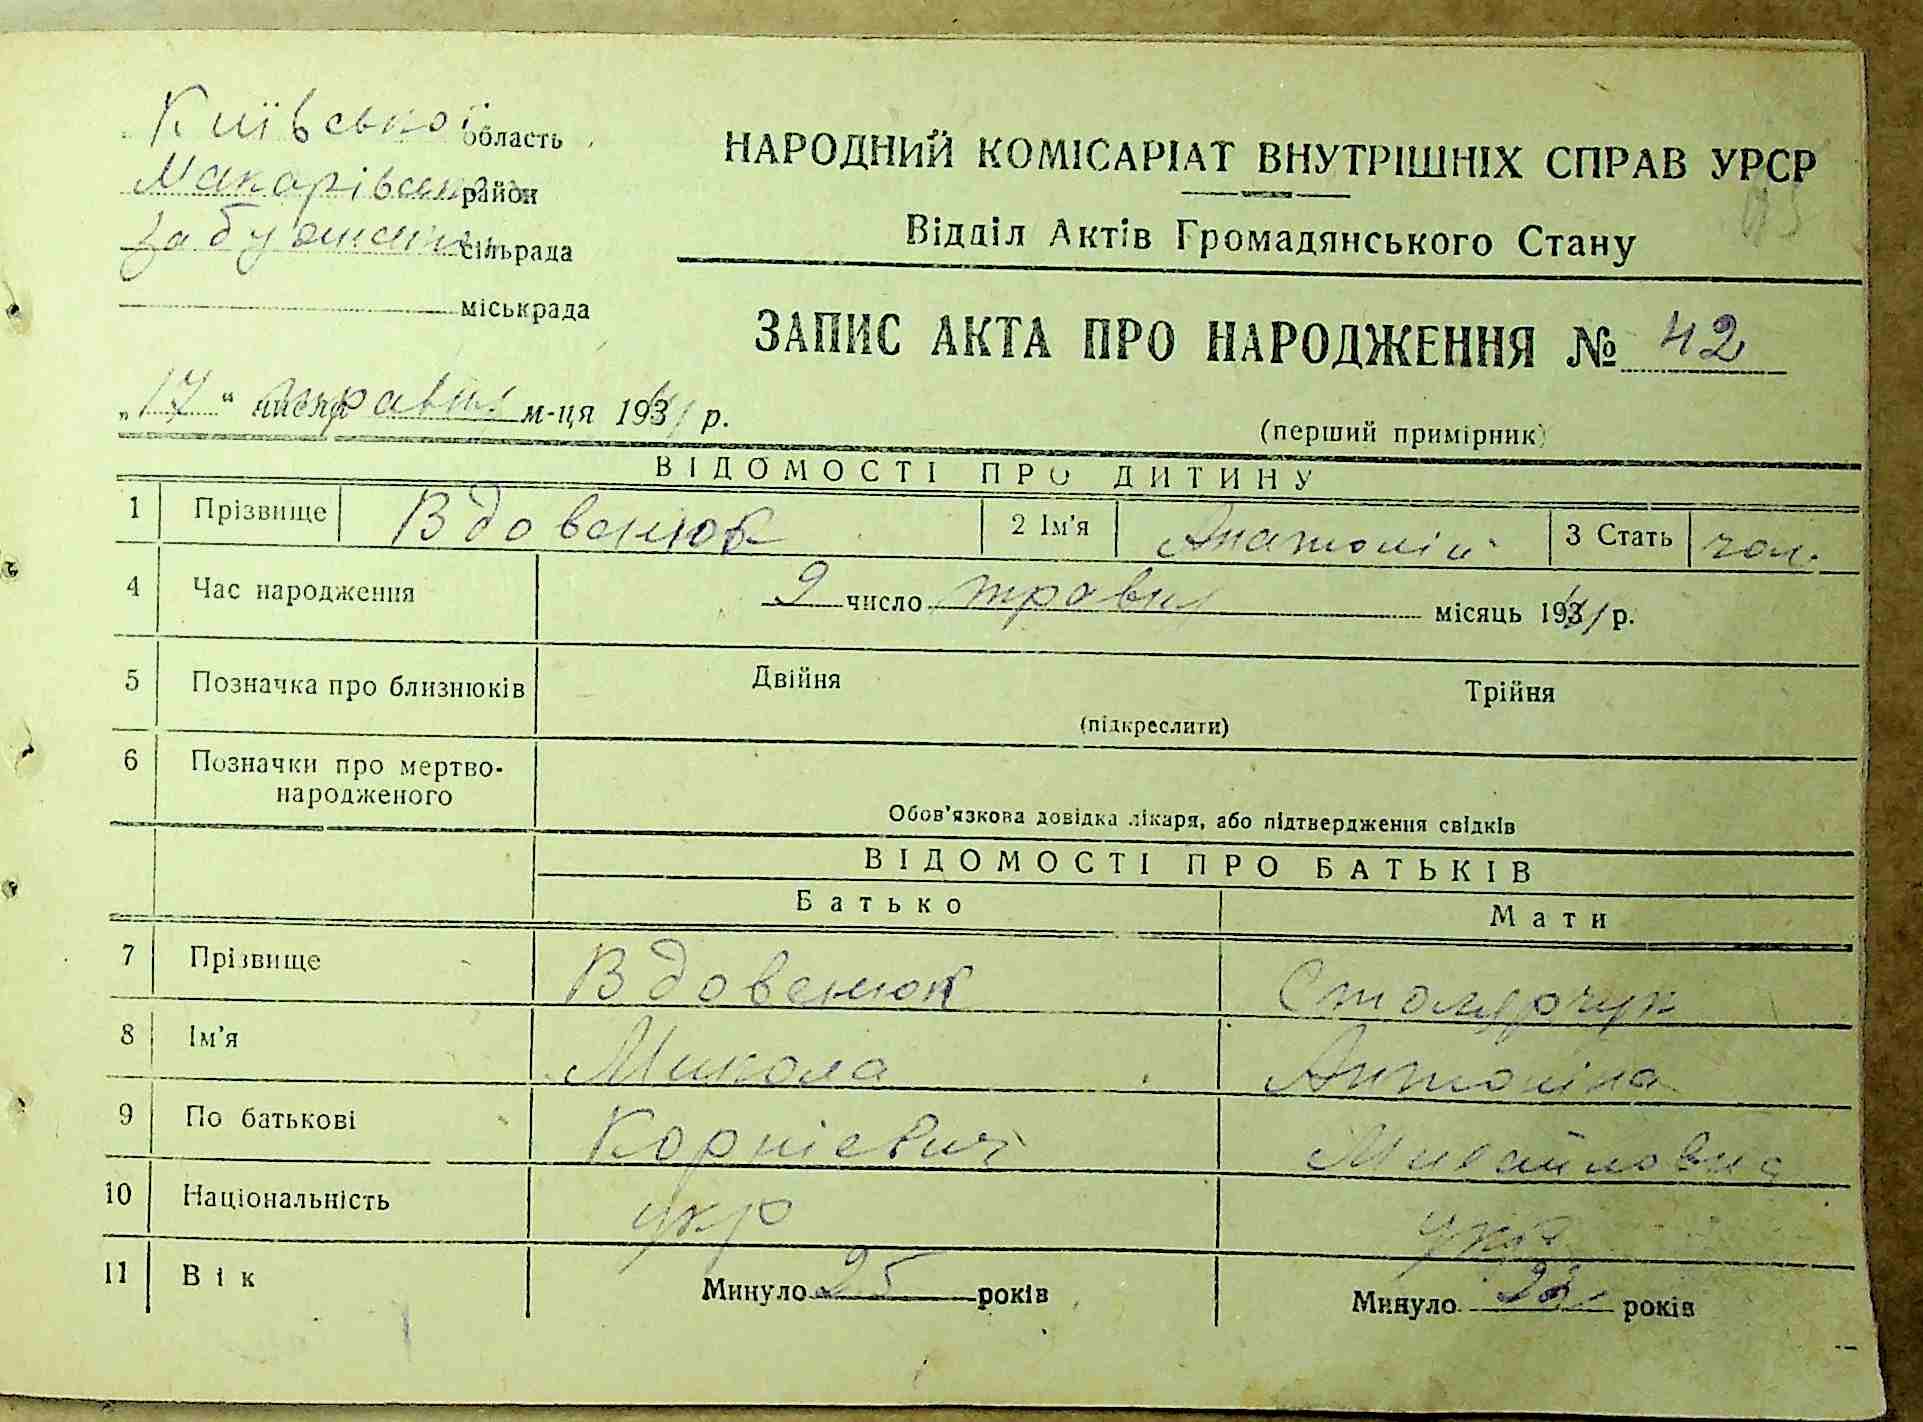 Київської область
Макарівськ район
сільрада
міськрада
НАРОДНИЙ КОМІСАРІАТ ВНУТРІШНІХ СПРАВ УРСР
Відділ Актів Громадянського Стану
ЗАПИС АКТА ПРО НАРОДЖЕННЯ № 42
„17“ числа травня м-ця 1941 р.
(перший примірник)
ВІДОМОСТІ ПРО ДИТИНУ
1 Прізвище Вдовенюк 2 Ім'я Анатолій 3 Стать чол.
4 Час народження 9 число травня місяць 1941 р.
5 Позначка про близнюків Двійня Трійня
(підкреслити)
6 Позначки про мертво-
народженого
Обов'язкова довідка лікаря, або підтвердження свідків
ВІДОМОСТІ ПРО БАТЬКІВ
Батько Мати
7 Прізвище Вдовенюк
8 Ім'я Микола Антоніна
9 По батькові Корнієвич Михайловна
10 Національність укр укр
11 Вік Минуло 25 років Минуло років